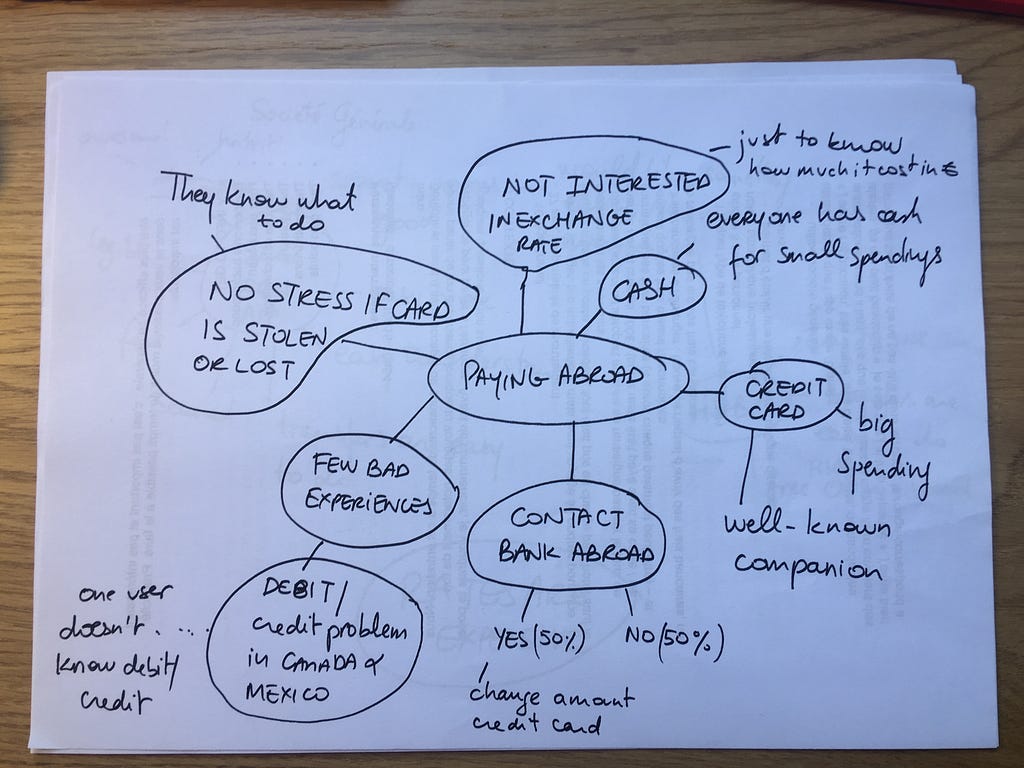 Société Générale
just to know
how much it cost in €
NOT INTERESTED
IN EXCHANGE
RATE
They know what
to do
everyone has cash
for small spendings
CASH
NO STRESS IF CARD
IS STOLEN
OR LOST
PAYING ABROAD
CREDIT
CARD
big
spending
well-known
companion
FEW BAD
EXPERIENCES
CONTACT
BANK ABROAD
YES (50%)
NO (50%)
change amount
credit card
DEBIT/
credit problem
in CANADA &
MEXICO
one user
doesn't....
know debit/
credit